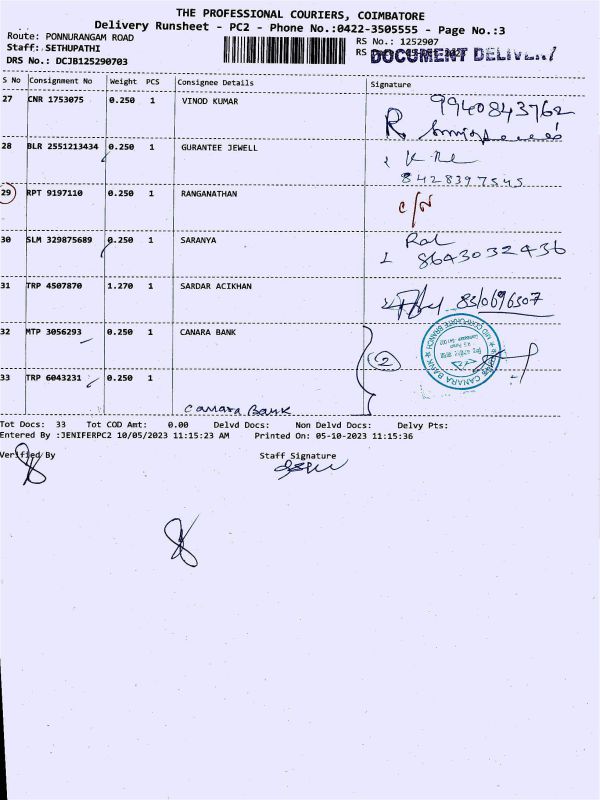 THE PROFESSIONAL COURIERS, COIMBATORE
Delivery Runsheet - PC2 - Phone No.:0422-3505555 - Page No.:3
Route: PONNURANGAM ROAD
RS No.: 1252907
Staff: SETHUPATHI
RS
DOCUMENT DELIVERY
DRS No.: DCJB125290703
S No Consignment No Weight PCS Consignee Details Signature
27 CNR 1753075 0.250 1 VINOD KUMAR 9940843762
28 BLR 2551213434 0.250 1 GURANTEE JEWELL
8428397545
29 RPT 9197110 0.250 1 RANGANATHAN C/N
30 SLM 329875689 0.250 1 SARANYA
8643032436
31 TRP 4507870 1.270 1 SARDAR ACIKHAN 8310696307
32 MTP 3056293 0.250 1 CANARA BANK
2
33 TRP 6043231 0.250 1
Canara Bank
Tot Docs: 33 Tot COD Amt: 0.00 Delvd Docs: Non Delvd Docs: Delvy Pts:
Entered By :JENIFERPC2 10/05/2023 11:15:23 AM Printed On: 05-10-2023 11:15:36
Verified By Staff Signature